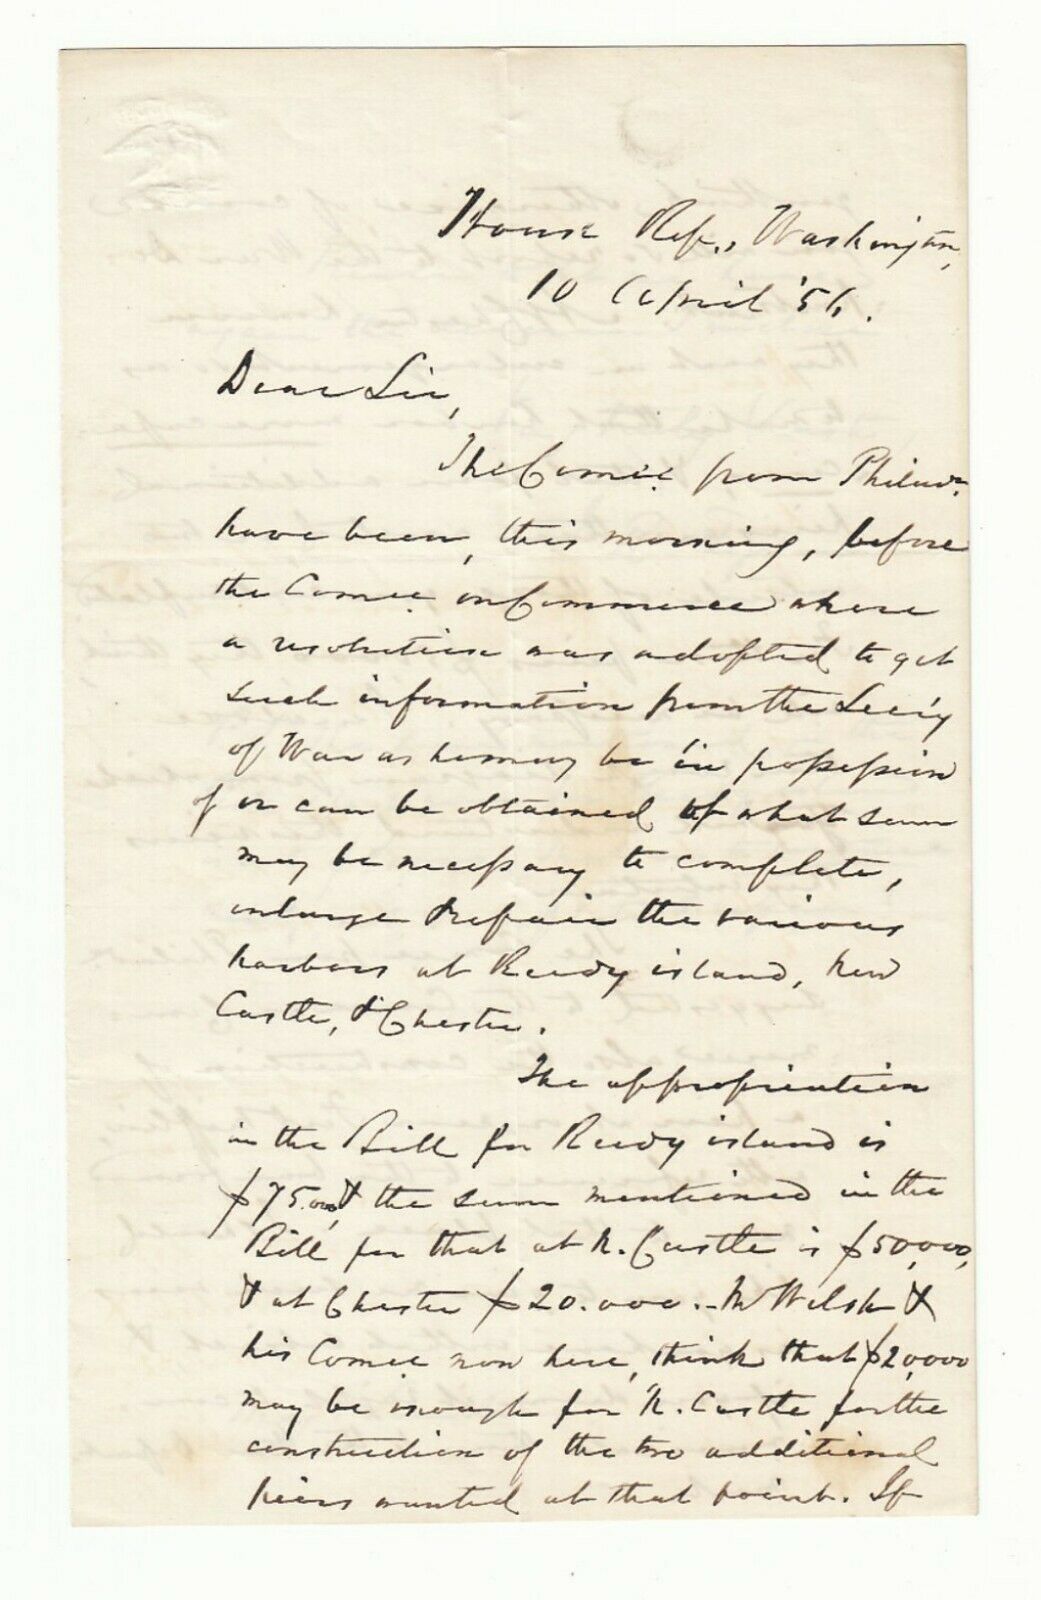 House Rep., Washington,
10 April '56.
Dear Sir,
The Comee. from Philada.
have been, this morning, before
the Comee. on Commerce where
a resolution was adopted to get
such information from the Secy
of War as he may be in possession
of or can be obtained of what sum
may be necessary to complete,
enlarge & repair the various
harbors at Reedy island, New
Castle, & Chester.
The appropriation
in the Bill for Reedy island is
$75.000, & the sum mentioned in the
Bill for that at N. Castle is $50,000,
& at Chester $20.000. - Mr Welsh &
his Comee now here, think that $20,000
may be enough for N. Castle for the
construction of the two additional
piers wanted at that point. If